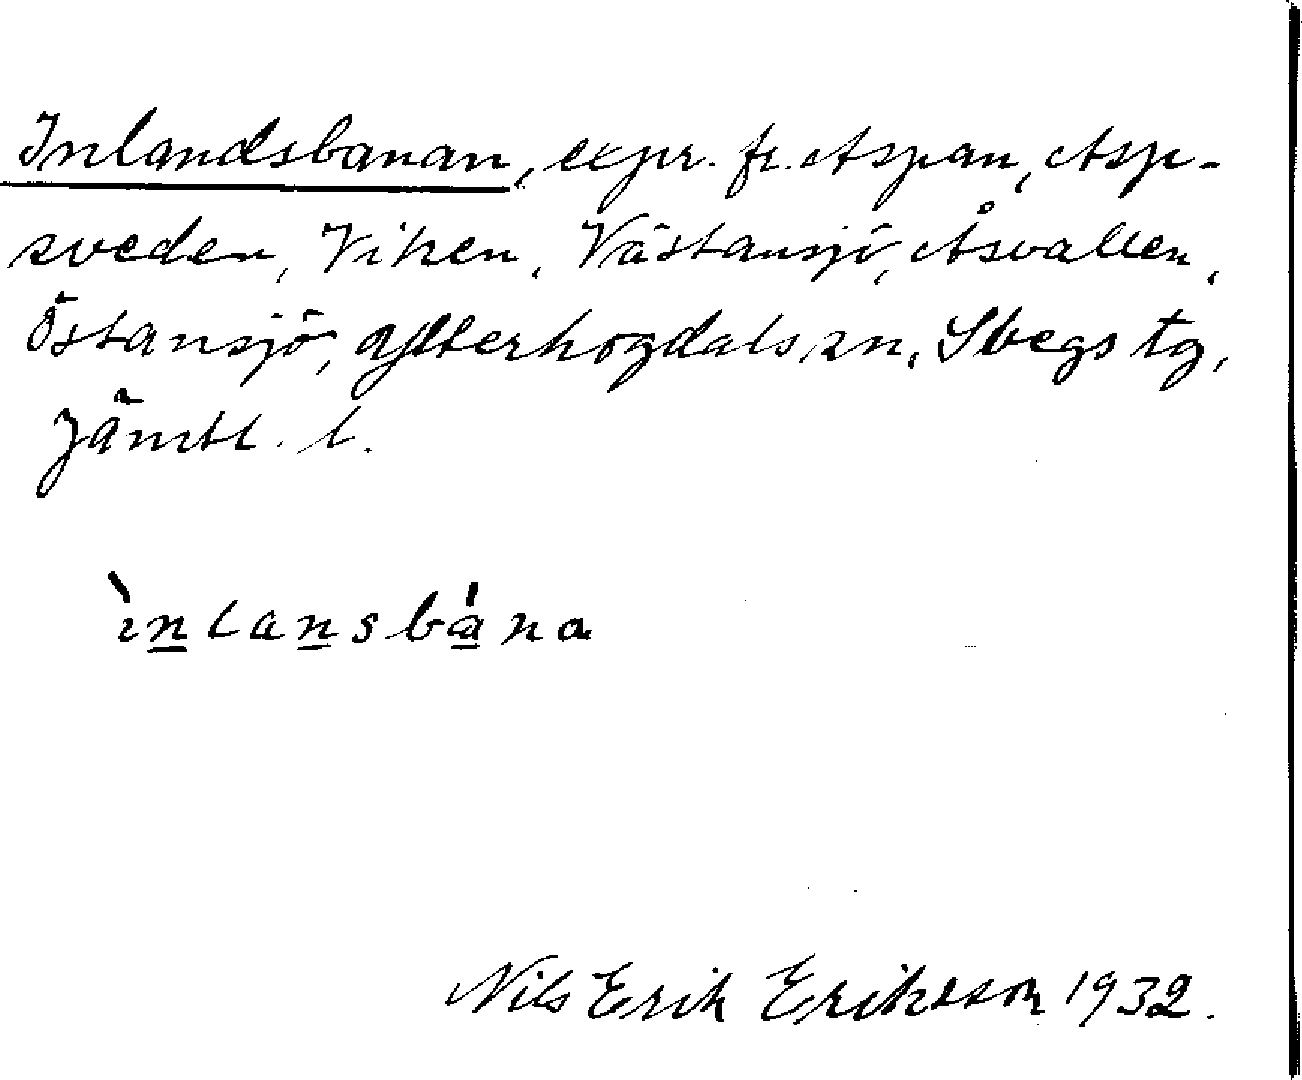 Inlandsbanan, expr. fr. Aspan, Asp-
sveden, Viken, Västansjö, Åsvallen,
Östansjö, Ytterhogdals sn, Svegs tg,
Jämtl. l.
ìnlansbána
Nils Erik Eriksson 1932.